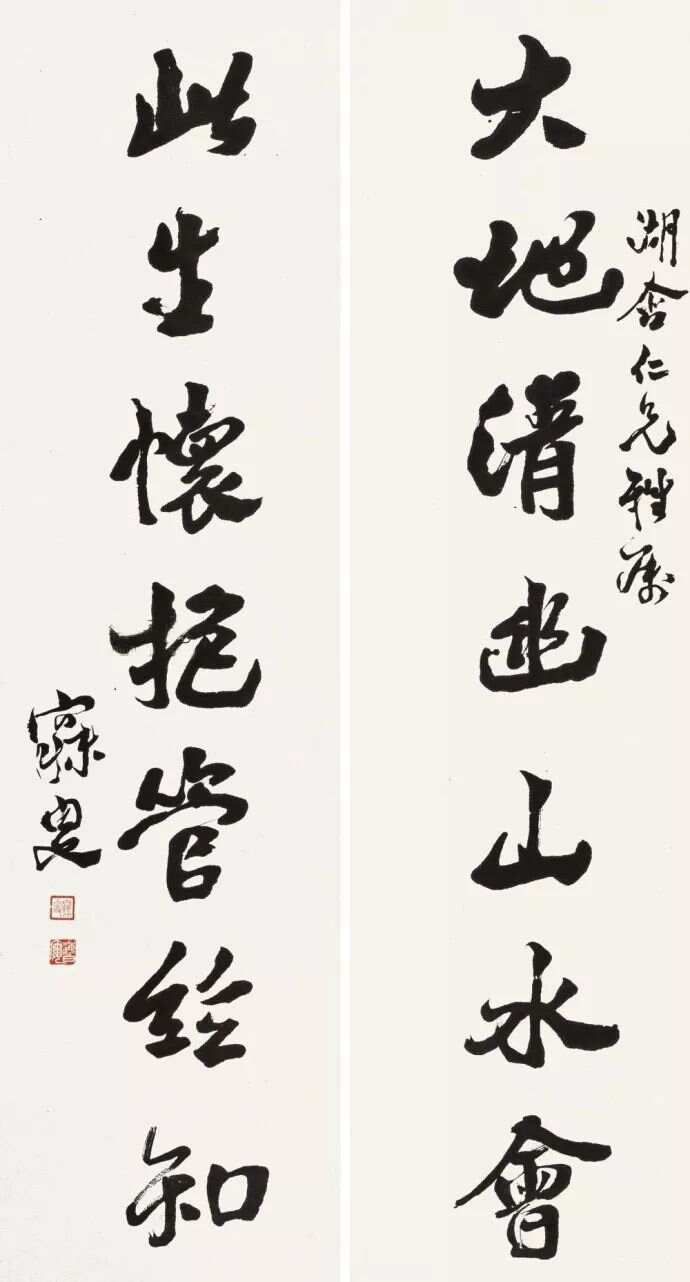 湖仁兄雅屬
大地清幽山水會
此生懷抱管絃知
寐叟